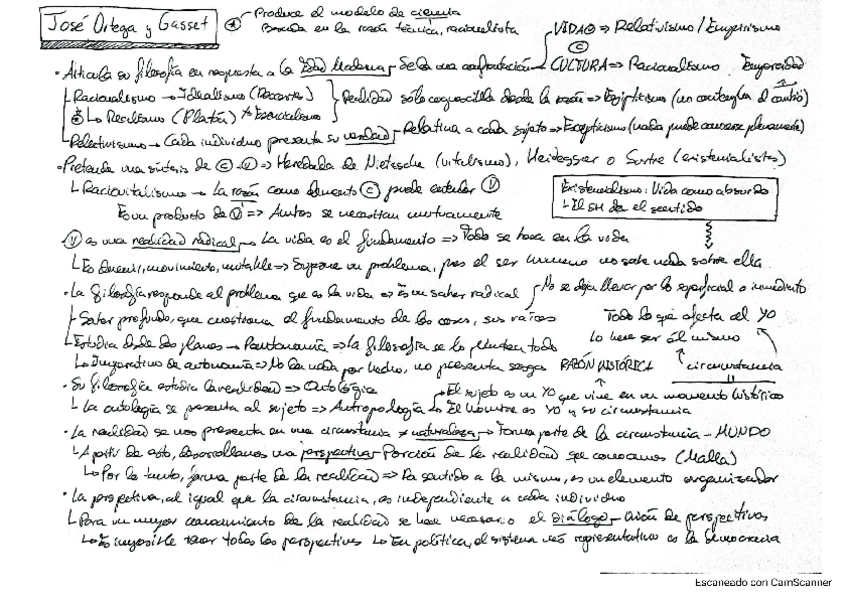 José Ortega y Gasset
* Produce el modelo de ciencia
Basada en la razón técnica, racionalista
VIDA (V) => Relativismo / Empirismo
(C)
· Articula su filosofía en respuesta a la Edad Moderna - Señala una confrontación CULTURA => Racionalismo
Racionalismo → Idealismo (Descartes)
* Realismo (Platón) Esencialismo
Realidad sólo cognoscible desde la razón => Egipticismo (no contempla el cambio)
Relativismo → Cada individuo presenta su verdad - Relativa a cada sujeto => Escepticismo (nada puede conocerse plenamente)
· Pretende una síntesis de (C) y (V) => Heredada de Nietzsche (vitalismo), Heidegger o Sartre (existencialistas)
Raciovitalismo → La razón como elemento (C) puede estudiar (V)
Es un producto de (V) => Ambos se necesitan mutuamente
Existencialismo: Vida como absurdo
El SH da el sentido
(V) es una realidad radical → La vida es el fundamento => Todo se basa en la vida
Es devenir, movimiento, mutable => Supone un problema, pues el ser humano no sabe nada sobre ella
· La filosofía responde al problema que es la vida => Es un saber radical
No se deja llevar por lo superficial o inmediato
Saber profundo, que cuestiona el fundamento de las cosas, sus raíces
Todo lo que afecta al YO
lo hace ser él mismo
Estudia desde dos planos → Pantonomía => La filosofía se lo plantea todo
Imperativo de autonomía => No da nada por hecho, no presenta sesgos
RAZÓN HISTÓRICA
circunstancia
· Su filosofía estudia la realidad => Ontológica
El sujeto es un YO que vive en un momento histórico
La ontología se presenta al sujeto => Antropología
El hombre es YO y su circunstancia
· La realidad se nos presenta en una circunstancia ≠ naturaleza → Forma parte de la circunstancia - MUNDO
A partir de esto, desarrollamos una perspectiva - Porción de la realidad que conocemos (Malla)
Por lo tanto, forma parte de la realidad => Da sentido a la misma, es un elemento organizador
· La perspetiva, al igual que la circunstancia, es independiente a cada individuo
Para un mejor conocimiento de la realidad se hace necesario el diálogo - Unión de perspectivas
Es imposible tener todas las perspectivas
En política, el sistema más representativo es la democracia
Escaneado con CamScanner